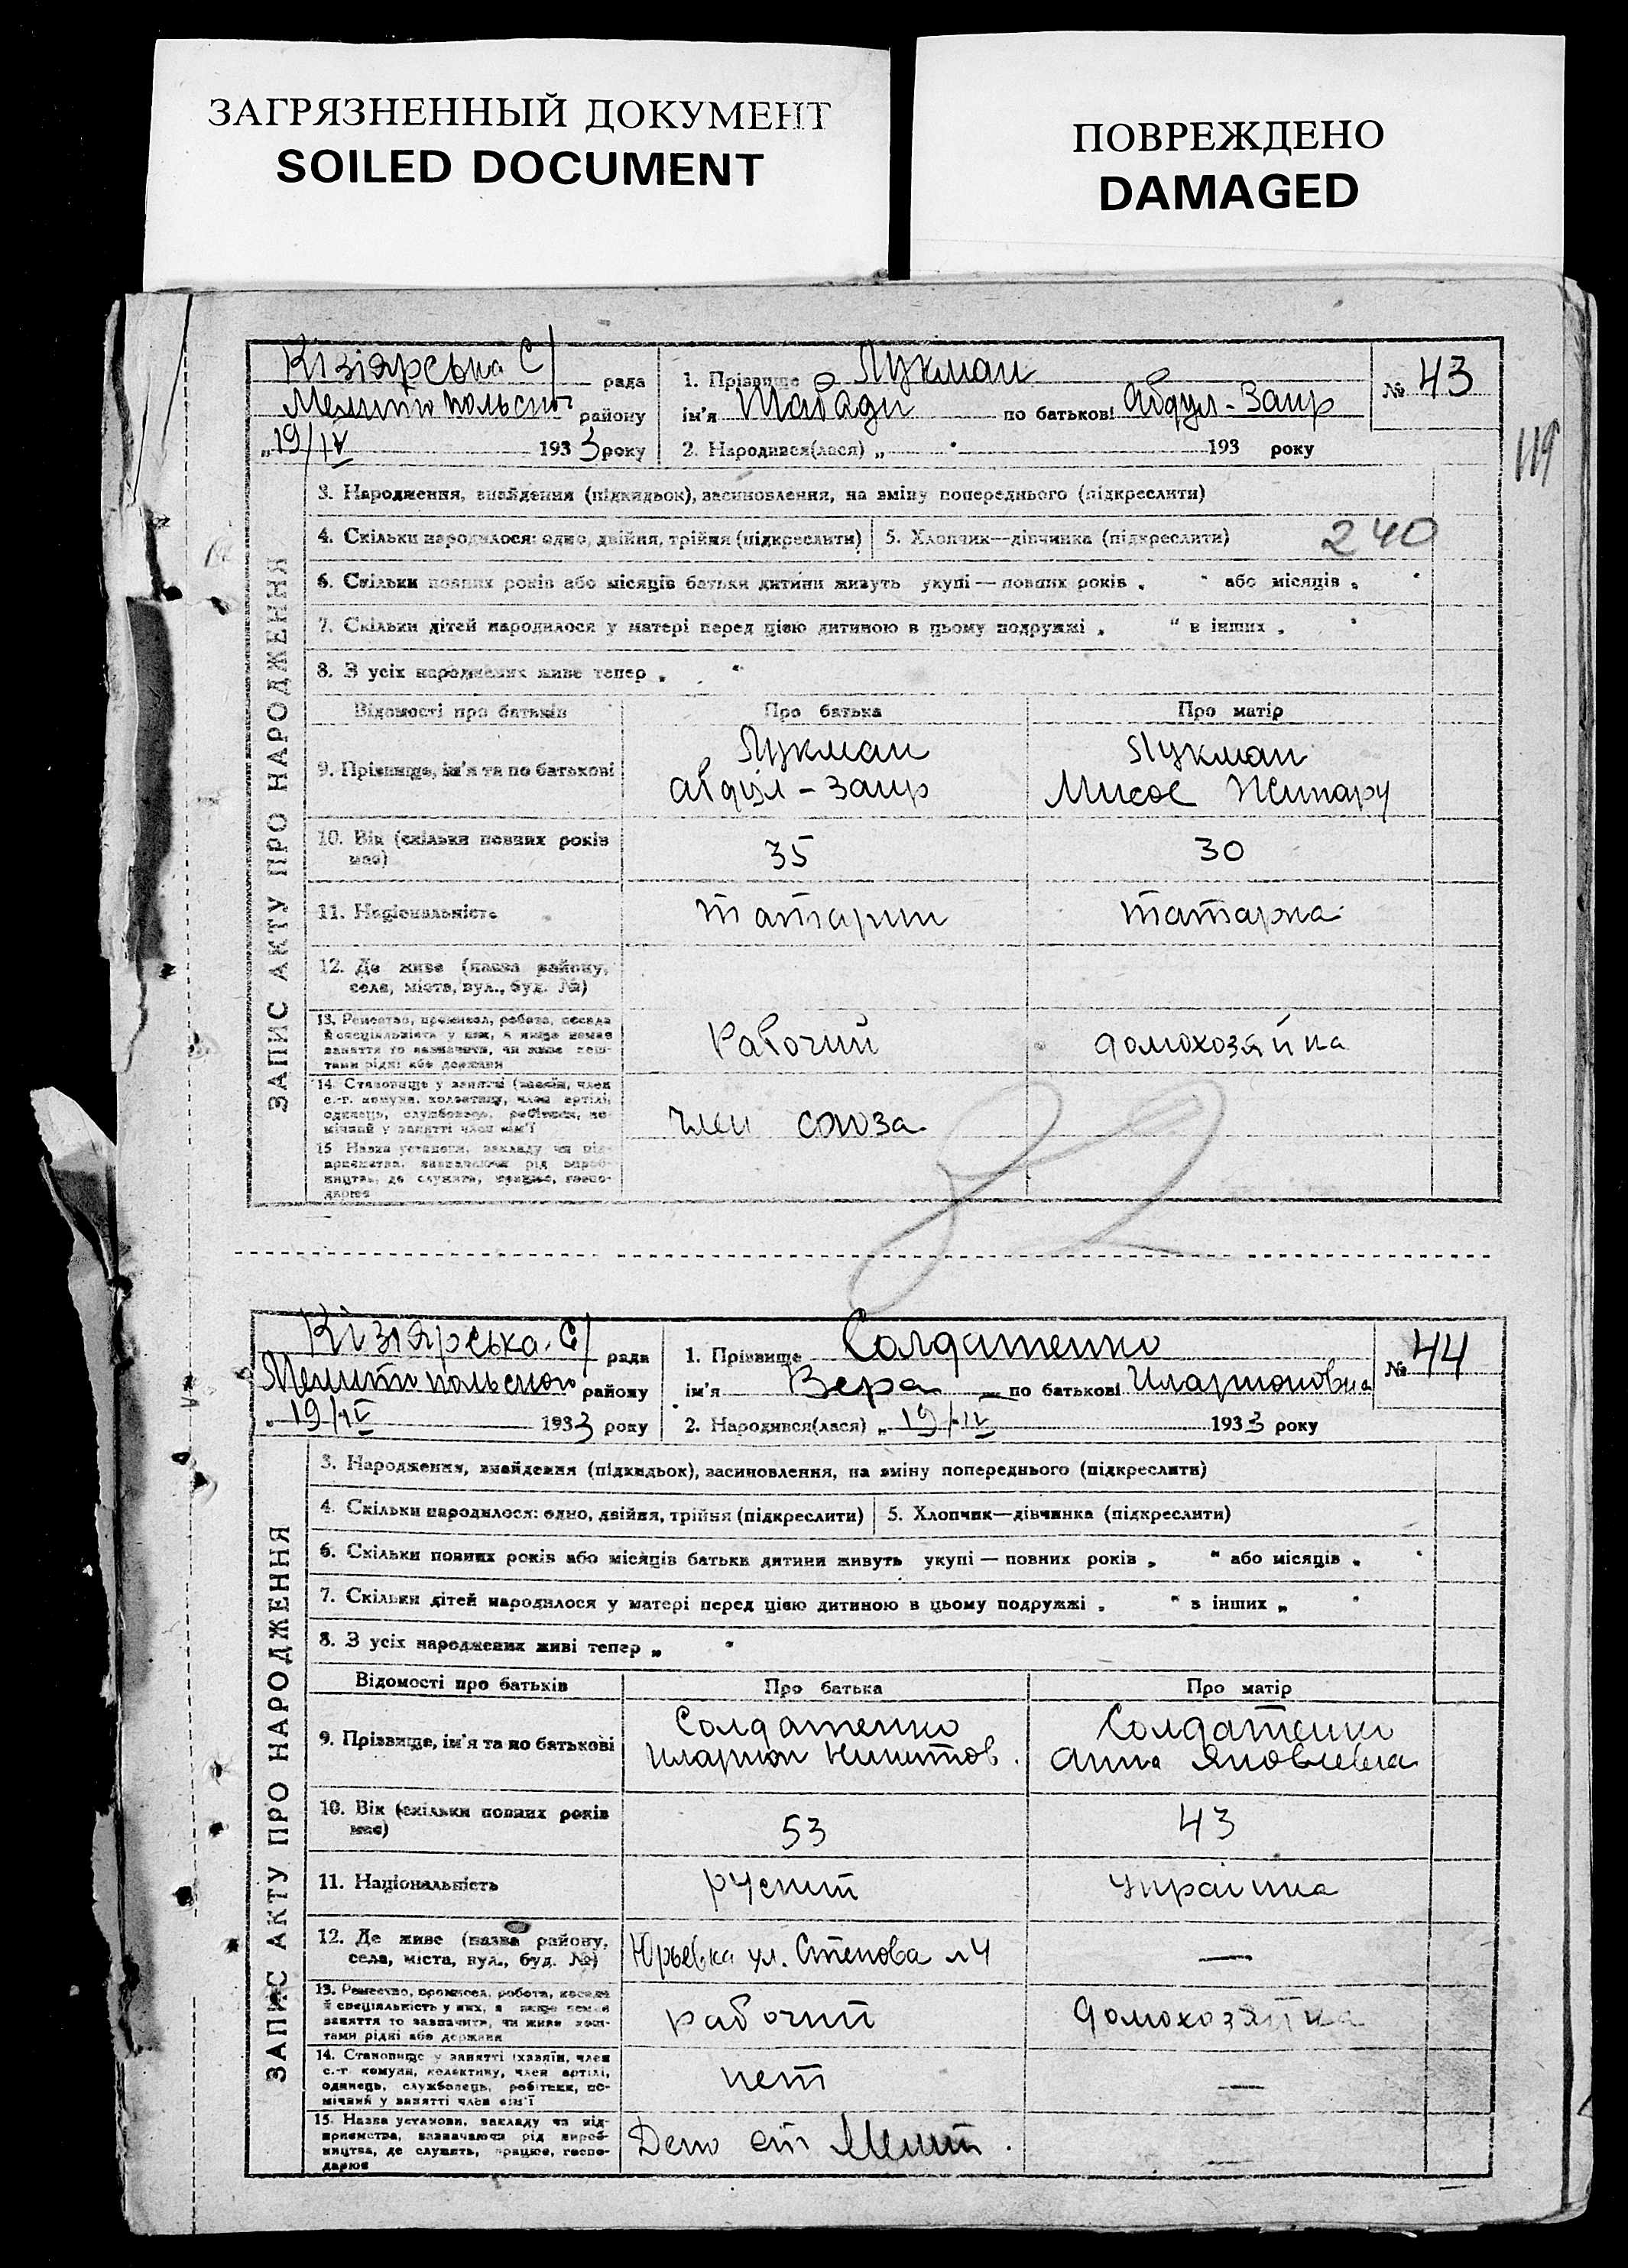 ЗАГРЯЗНЕННЫЙ ДОКУМЕНТ
SOILED DOCUMENT
ПОВРЕЖДЕНО
DAMAGED
119
ЗАПИС АКТУ ПРО НАРОДЖЕННЯ
Кізіярська С/ рада
Мелитопольског району
„19/IV 1933 року
1. Прізвище Лукман
ім'я по батькові Абдул-Заир
№ 43
2. Народився(лася) „ " 193 року
3. Народження, знайдення (підкидьок), засиновлення, на зміну попереднього (підкреслити)
4. Скільки народилося: одно, двійня, трійня (підкреслити) 5. Хлопчик—дівчинка (підкреслити)
240
6. Скільки повних років або місяців батьки дитини живуть укупі — повних років „ " або місяців „ "
7. Скільки дітей народилося у матері перед цією дитиною в цьому подружжі „ " в інших „ "
8. З усіх народжених живе тепер „ "
Відомості про батьків Про батька Про матір
9. Прізвище, ім'я та по батькові
Лукман
Абдул-Заир
Лукман
10. Вік (скільки повних років має) 35 30
11. Національність татарин татарка
12. Де живе (назва району,
села, міста, вул., буд. №)
13. Ремество, промисел, робота, посада
й спеціальність у них, а якщо немає
заняття то зазначити, чи живе кош-
тами рідні або держави
Рабочий домохозяйка
14. Становище у занятті (хазяїн, член
с.-г. комуни, колективу, член артілі,
одинець, службовець, робітник, по-
мічний у занятті член сім'ї
член союза
15. Назва установи, закладу чи під-
приємства, зазначаючи рід вироб-
ництва, де служить, працює, госпо-
дарює
ЗАПИС АКТУ ПРО НАРОДЖЕННЯ
Кізіярська С/ рада
Мелитопольского району
„19/IV 1933 року
1. Прізвище Солдатенко
ім'я Вера по батькові Иларионовна
№ 44
2. Народився(лася) „19/IV 1933 року
3. Народження, знайдення (підкидьок), засиновлення, на зміну попереднього (підкреслити)
4. Скільки народилося: одно, двійня, трійня (підкреслити) 5. Хлопчик—дівчинка (підкреслити)
6. Скільки повних років або місяців батьки дитини живуть укупі — повних років „ " або місяців „ "
7. Скільки дітей народилося у матері перед цією дитиною в цьому подружжі „ " в інших „ "
8. З усіх народжених живі тепер „ "
Відомості про батьків Про батька Про матір
9. Прізвище, ім'я та по батькові
Солдатенко
Иларион Никитов.
Солдатенко
Анна Яковлевна
10. Вік (скільки повних років має) 53 43
11. Національність русский украінка
12. Де живе (назва району,
села, міста, вул., буд. №)
Юрьевка ул. Степова №4 —
13. Ремество, промисел, робота, посада
й спеціальність у них, а якщо немає
заняття то зазначити, чи живе кош-
тами рідні або держави
рабочий домохозяйка
14. Становище у занятті (хазяїн, член
с.-г. комуни, колективу, член артілі,
одинець, службовець, робітник, по-
мічний у занятті член сім'ї
нет —
15. Назва установи, закладу чи під-
приємства, зазначаючи рід вироб-
ництва, де служить, працює, госпо-
дарює
Депо ст Мелит. —